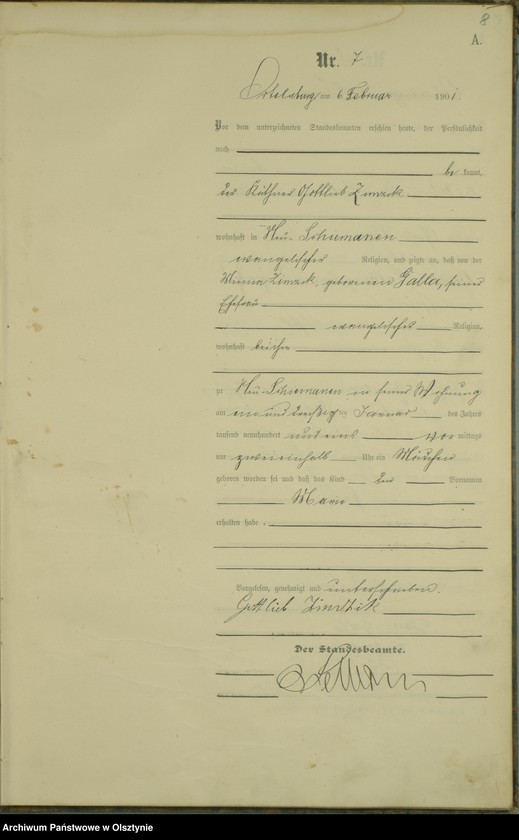 8
A.
Nr. 7
Ortelsburg am 6 Februar 1901.
Vor dem unterzeichneten Standesbeamten erschien heute, der Persönlichkeit
nach
be kannt,
der Käthner Gottlieb
wohnhaft in Neu-Schiemanen
evangelischer Religion, und zeigte an, daß von der
geborenen Galla, seiner
Ehefrau
evangelischer Religion,
wohnhaft bei ihm
zu Neu-Schiemanen in seiner Wohnung
am ein und dreißig ten Januar des Jahres
tausend neunhundert und eins Vor mittags
um zweieinhalb Uhr ein Mädchen
geboren worden sei und daß das Kind den Vornamen
Marie
erhalten habe.
Vorgelesen, genehmigt und unterschrieben.
Gottlieb
Der Standesbeamte.
Archiwum Państwowe w Olsztynie